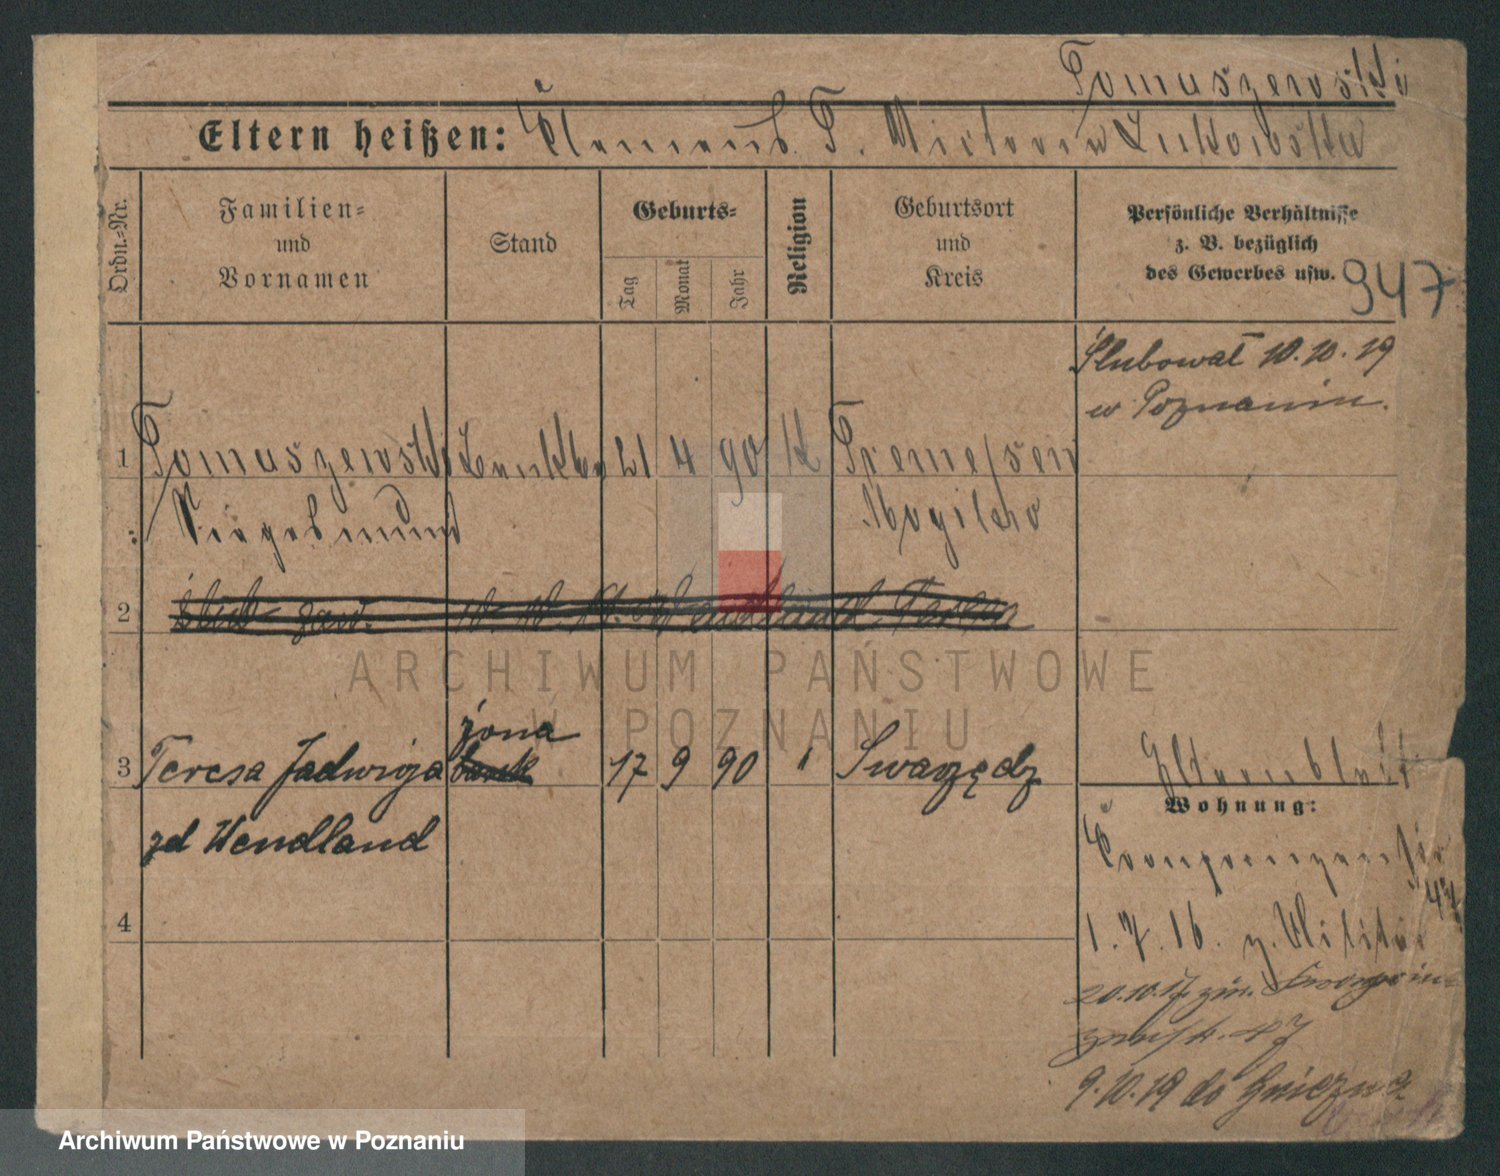 Tomaszewski
Eltern heißen: Clemens T. Victoria Lutkowska
Ordn.-Nr.
Familien-
und
Vornamen
Stand
Geburts-
Tag
Monat
Jahr
Religion
Geburtsort
und
Kreis
Persönliche Verhältnisse
z. B. bezüglich
des Gewerbes usw.
947
Ślubował 10.10.19
w Poznaniu.
1 Tomaszewski 21 4 90 K Tremessen
Siegesmund Mogilno
2
żona
3 Teresa Jadwiga 17 9 90 " Swarzędz
zd Wendland
Elternblatt
Wohnung:
Kronprinzenstr
47
4
1.7.16. z. Militär
20.10.17. zur. Kronprin-
zenstr. 47
9.10.19 do Gniezna
ARCHIWUM PAŃSTWOWE
W POZNANIU
Archiwum Państwowe w Poznaniu